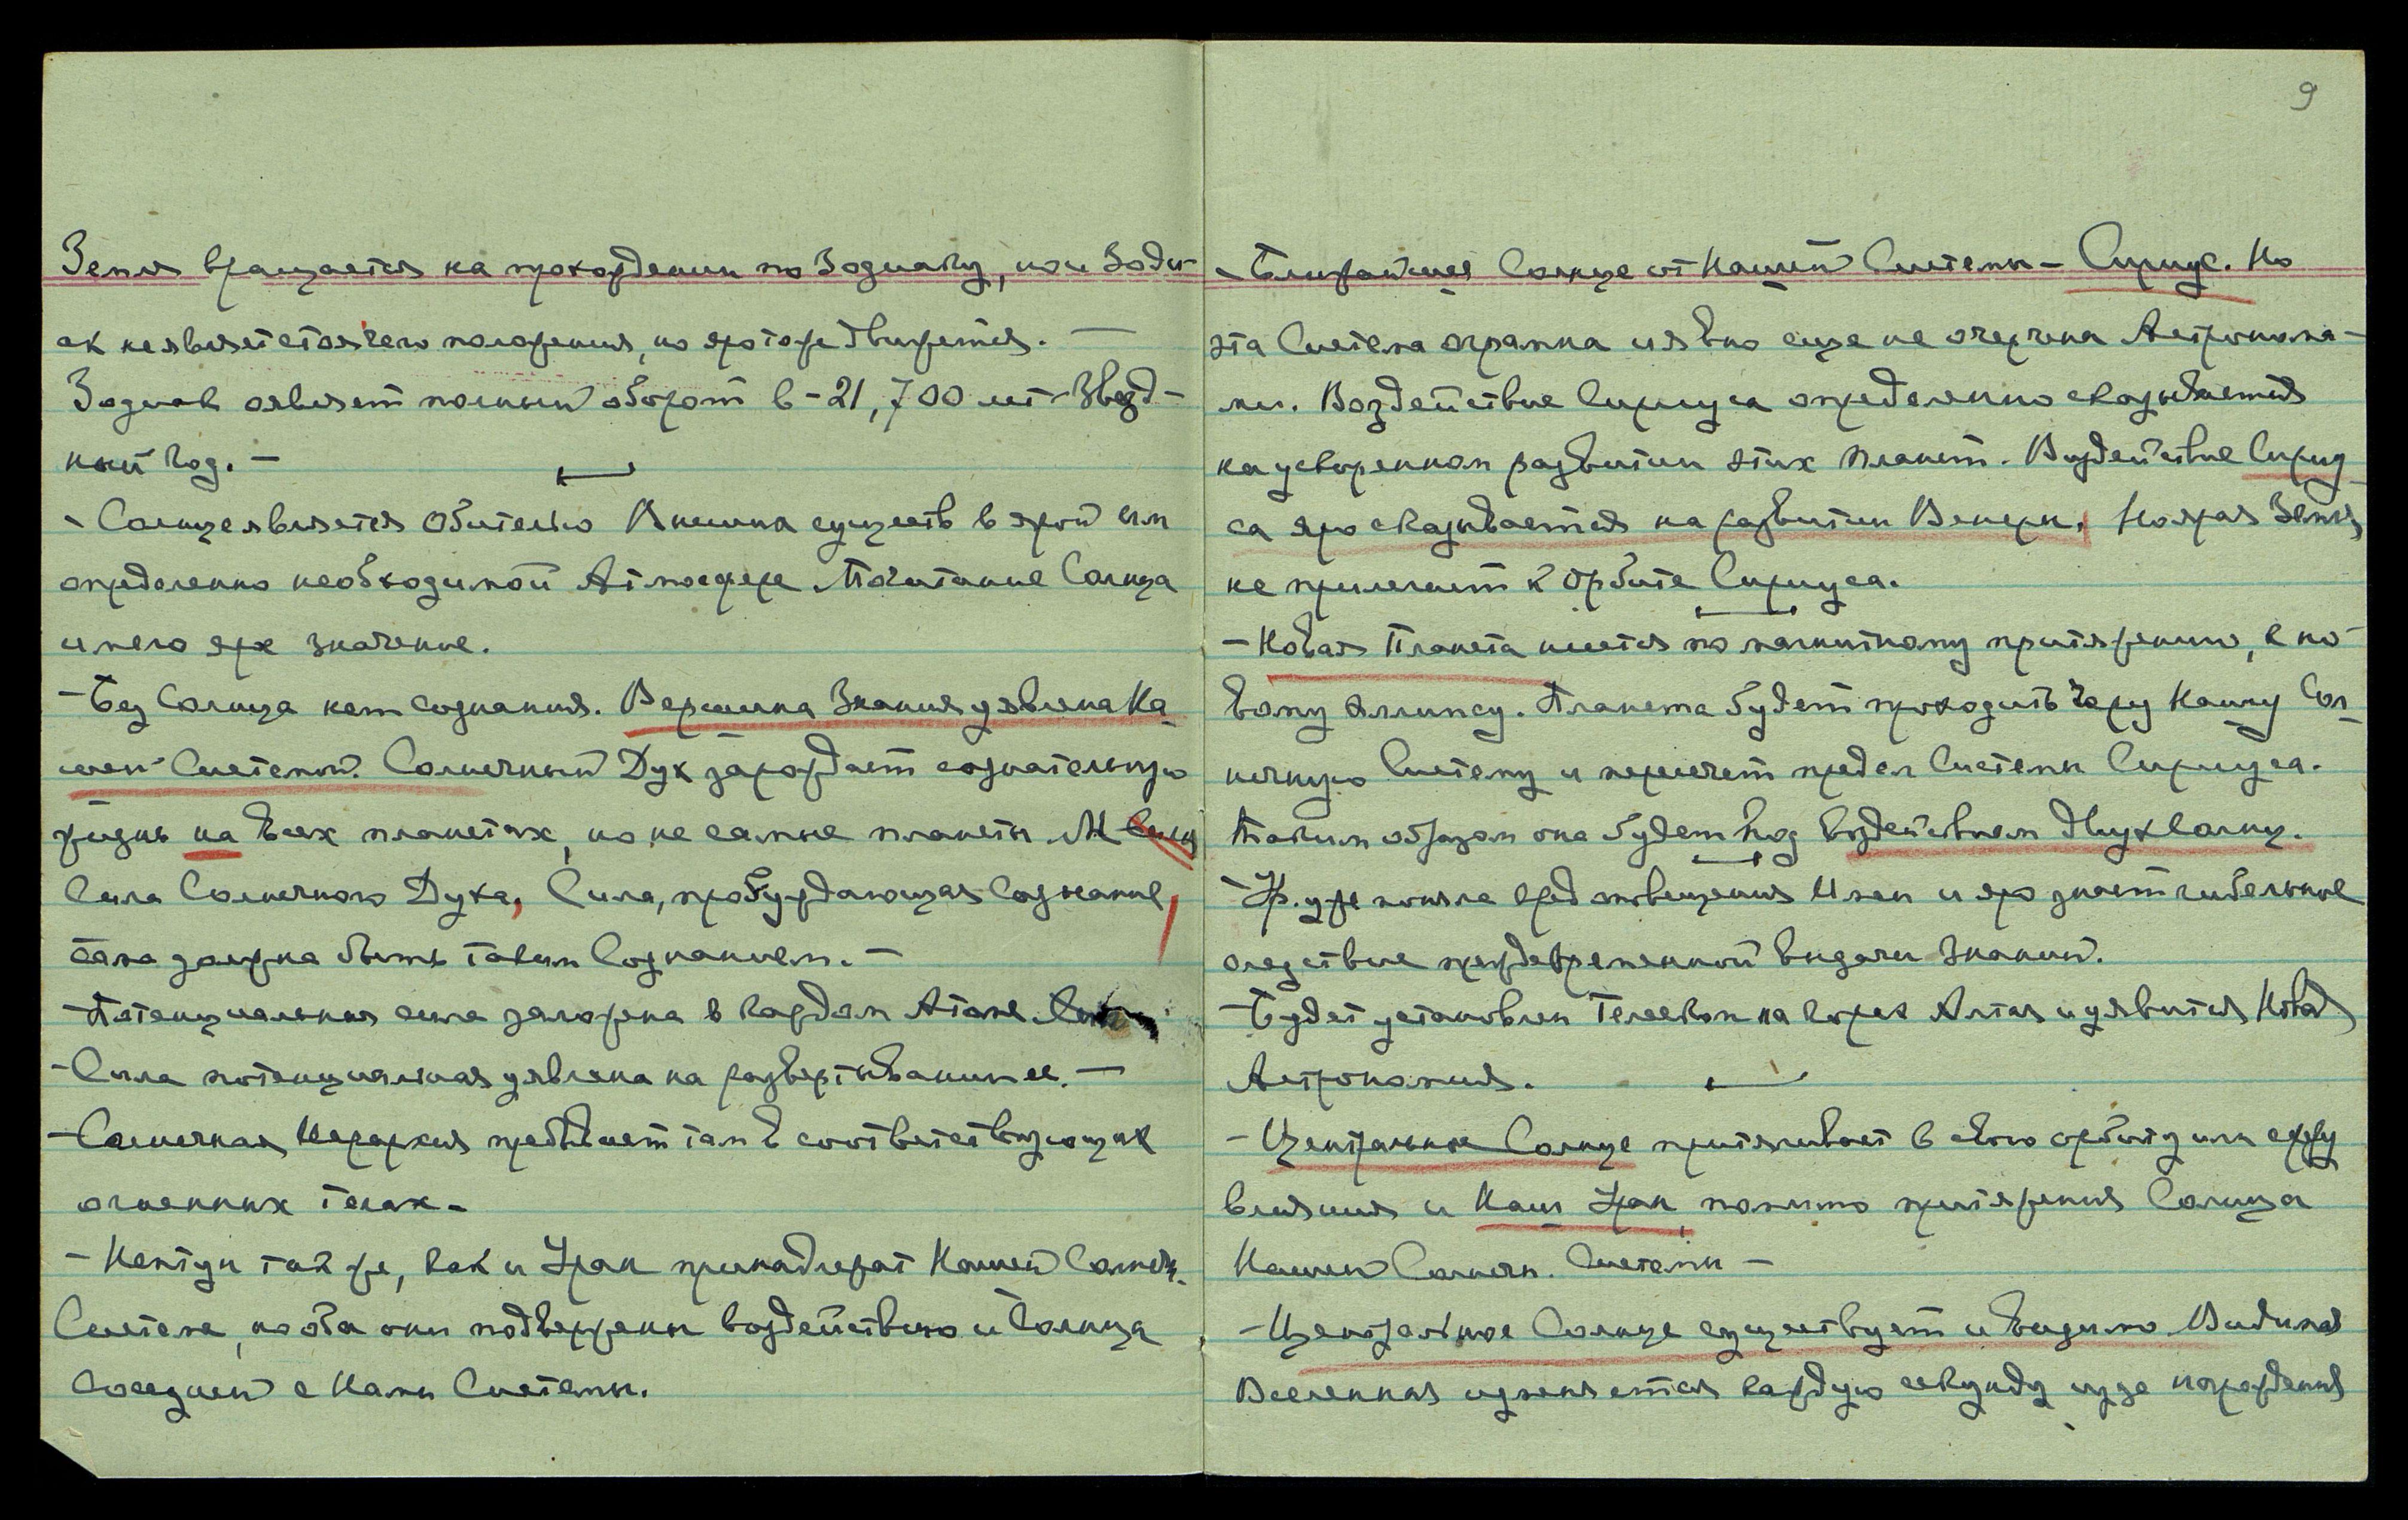 Земля вращается на прохождении по Зодиаку, но и Зоди-
ак не являет стоячего положения, но яро тоже движется. —
Зодиак являет полный оборот в – 21,700 лет – Звезд-
ный год. —
- Солнце является Обителью существ в ярой им
определенно необходимой Атмосфере. Почитание Солнца
имело ярое значение.
- Без Солнца нет сознания. Вершина Знания уявлена На-
шей Системой. Солнечный Дух зарождает сознательную
жизнь на всех планетах, но не самые планеты. М
Сила Солнечного Духа, Сила, пробуждающая Сознание,
сама должна быть таким Сознанием. —
- Потенциальная сила заложена в каждом Атоме.
- Сила потенциальная уявлена на развертывании ее. —
- Солнечная Иерархия пребывает там в соответствующих
огненных телах. -
- Нептун так же, как и Уран принадлежат Нашей Солнечн.
Системе, но оба они подвержены воздействию и Солнца
соседней с Нами Системы.
9
- Ближайшее Солнце от Нашей Системы – Сириус. Но
эта Система огромна и явно еще не очерчена Астронома-
ми. Воздействие Сириуса определенно сказывается
на ускоренном развитии этих планет. Воздействие Сириу-
са яро сказывается на развитии Венеры. Но ярая Земля
не прилегает к орбите Сириуса.
- Новая Планета несется по магнитному притяжению, к но-
вому эллипсу. Планета будет проходить через Нашу Сол-
нечную Систему и пересечет предел Системы Сириуса.
Таким образом она будет под воздействием двух Солнц.
- Ур. уже поняла вред оповещения Имен и яро знает гибельное
следствие преждевременной выдачи Знаний.
- Будет установлен Телескоп на горах Алтая и уявится Новая
Астрономия.
- Центральное Солнце притягивает в свою орбиту или сферу
влияния и Наш Уран, помимо притяжения Солнца
Нашей Солнечн. Системы —
- Центральное Солнце существует и видимо. Видимая
Вселенная изменяется каждую секунду из-за нарождения